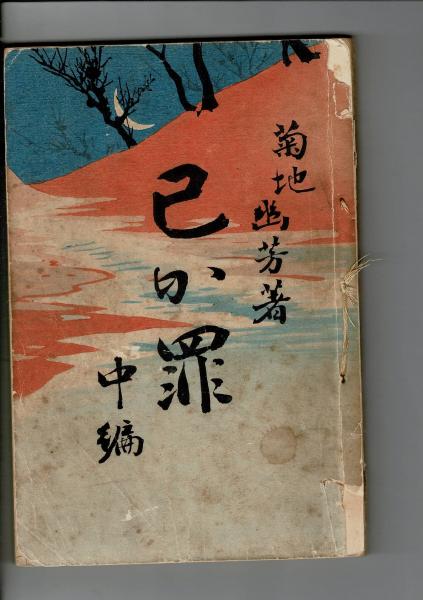 菊地幽芳著
己が罪
中編